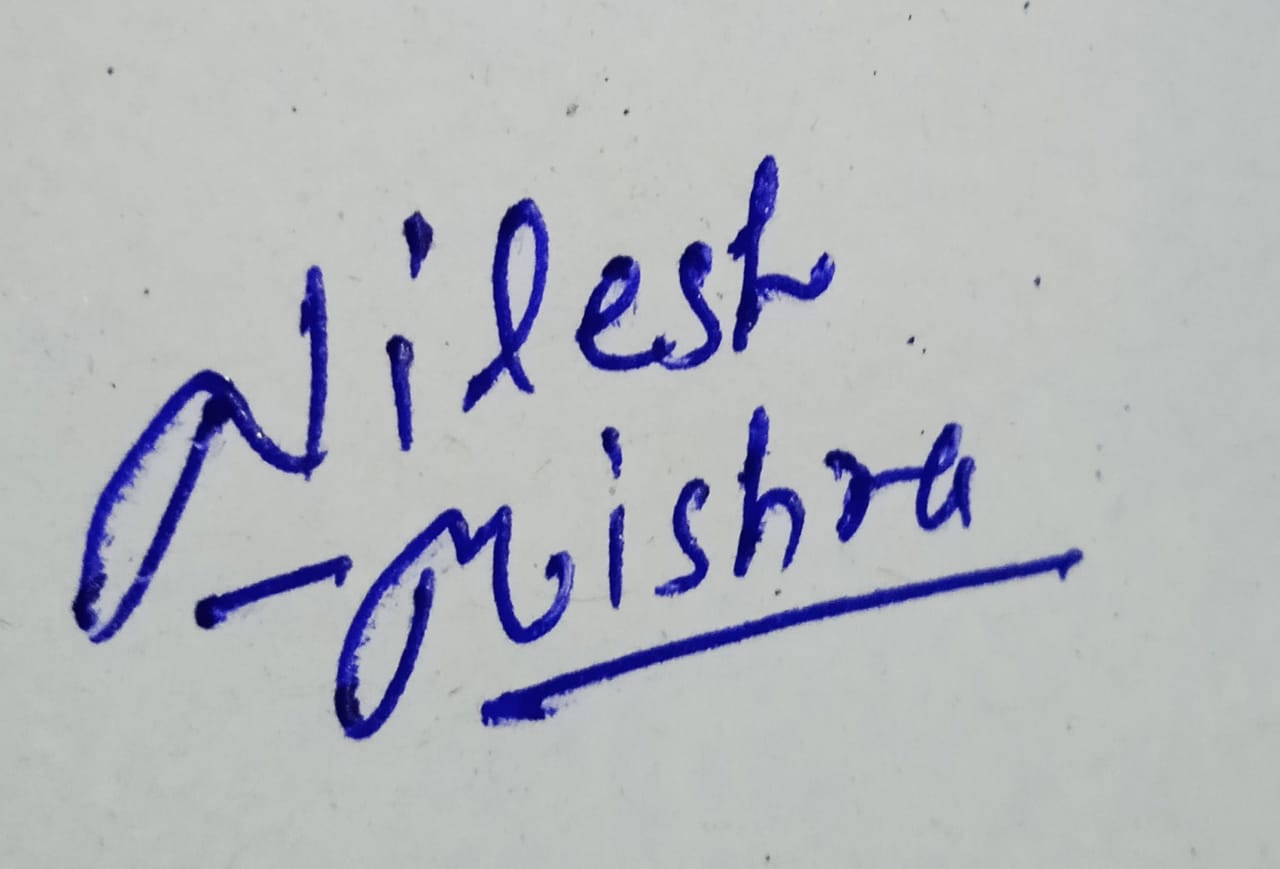 Nilesh
-Mishra